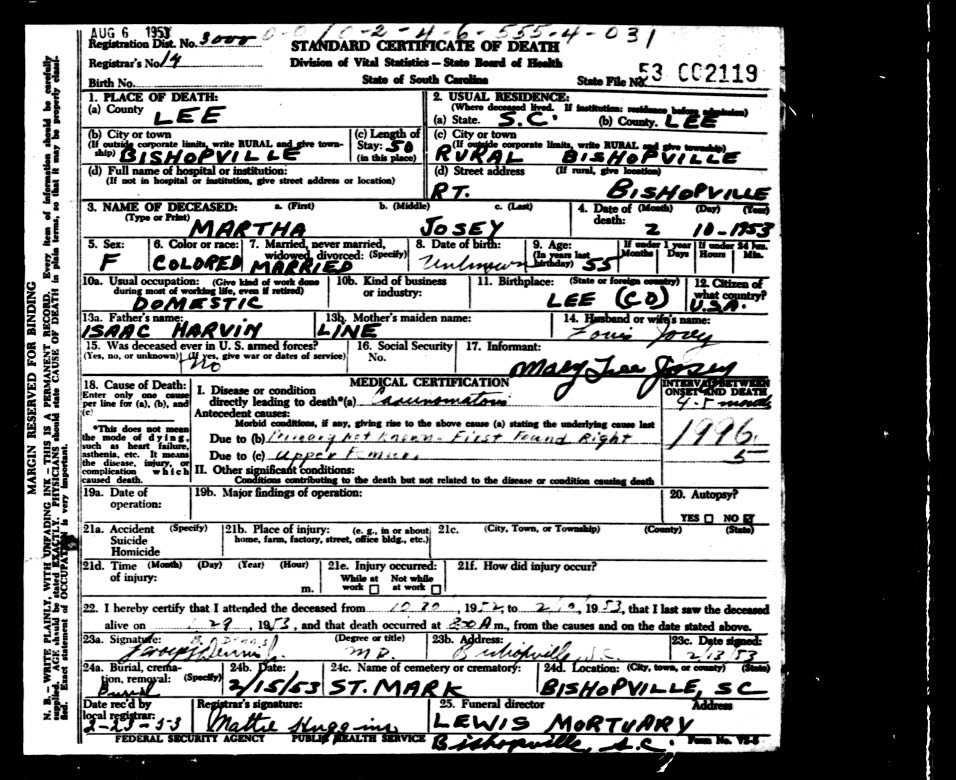 AUG 6 1953
Registration Dist. No. 3000 0-0 10-2-4-6-555-4-031
STANDARD CERTIFICATE OF DEATH
Registrar's No. 14
Division of Vital Statistics—State Board of Health
53 002119
Birth No.
State of South Carolina
State File No.
1. PLACE OF DEATH:
(a) County LEE
2. USUAL RESIDENCE:
(Where deceased lived. If institution: residence before admission)
(a) State. S.C. (b) County. LEE
(b) City or town
(If outside corporate limits, write RURAL and give township) BISHOPVILLE
(c) Length of
Stay: 50
(in this place)
(c) City or town
(If outside corporate limits, write RURAL and give township)
RURAL BISHOPVILLE
(d) Full name of hospital or institution:
(If not in hospital or institution, give street address or location)
(d) Street address (If rural, give location)
RT. BISHOPVILLE
3. NAME OF DECEASED: a. (First) b. (Middle) c. (Last)
(Type or Print) MARTHA JOSEY
4. Date of (Month) (Day) (Year)
death: 2 10-1953
5. Sex:
F
6. Color or race:
COLORED
7. Married, never married,
widowed, divorced: (Specify)
MARRIED
8. Date of birth:
Unknown
9. Age:
(In years last
birthday) 55
If under 1 year
Months Days
If under 24 hrs.
Hours Min.
10a. Usual occupation: (Give kind of work done
during most of working life, even if retired)
DOMESTIC
10b. Kind of business
or industry:
11. Birthplace: (State or foreign country)
LEE (CO)
12. Citizen of
what country?
U.S.A.
13a. Father's name:
ISAAC HARVIN
13b. Mother's maiden name:
LINE
14. Husband or wife's name:
Louis Josey
15. Was deceased ever in U. S. armed forces?
(Yes, no, or unknown) (If yes, give war or dates of service)
No
16. Social Security
No.
17. Informant:
Mary Lee Josey
18. Cause of Death:
Enter only one cause
per line for (a), (b), and
(c)
*This does not mean
the mode of dying,
such as heart failure,
asthenia, etc. It means
the disease, injury, or
complication which
caused death.
MEDICAL CERTIFICATION
I. Disease or condition
directly leading to death*(a) Carcinomatosis
Antecedent causes:
Morbid conditions, if any, giving rise to the above cause (a) stating the underlying cause last
Due to (b) Primary not known - First Found Right
Due to (c) Upper Femur
II. Other significant conditions:
Conditions contributing to the death but not related to the disease or condition causing death
INTERVAL BETWEEN
ONSET AND DEATH
4-5 months
1996
5
19a. Date of
operation:
19b. Major findings of operation:
20. Autopsy?
YES NO
21a. Accident (Specify)
Suicide
Homicide
21b. Place of injury: (e. g., in or about
home, farm, factory, street, office bldg., etc.)
21c. (City, Town, or Township) (County) (State)
21d. Time (Month) (Day) (Year) (Hour)
of injury: m.
21e. Injury occurred:
While at work Not while at work
21f. How did injury occur?
22. I hereby certify that I attended the deceased from 10 30, 1952, to 2/10, 1953, that I last saw the deceased
alive on 1 29, 1953, and that death occurred at m., from the causes and on the date stated above.
23a. Signature: Dennis (Degree or title) M.D.
23b. Address:
Bishopville, S.C.
23c. Date signed:
2/13/53
24a. Burial, crema-
tion, removal: (Specify)
Burial
24b. Date:
2/15/53
24c. Name of cemetery or crematory:
ST. MARK
24d. Location: (City, town, or county) (State)
BISHOPVILLE, SC
Date rec'd by
local registrar:
2-23-53
Registrar's signature:
Mattie Huggins
25. Funeral director Address
LEWIS MORTUARY
Bishopville, S.C.
FEDERAL SECURITY AGENCY PUBLIC HEALTH SERVICE
Form No. VS-5
MARGIN RESERVED FOR BINDING
N. B.—WRITE PLAINLY, WITH UNFADING INK—THIS IS A PERMANENT RECORD. Every item of information should be carefully
supplied. AGE should be stated EXACTLY. PHYSICIANS should state CAUSE OF DEATH in plain terms, so that it may be properly classi-
fied. Exact statement of OCCUPATION is very important.